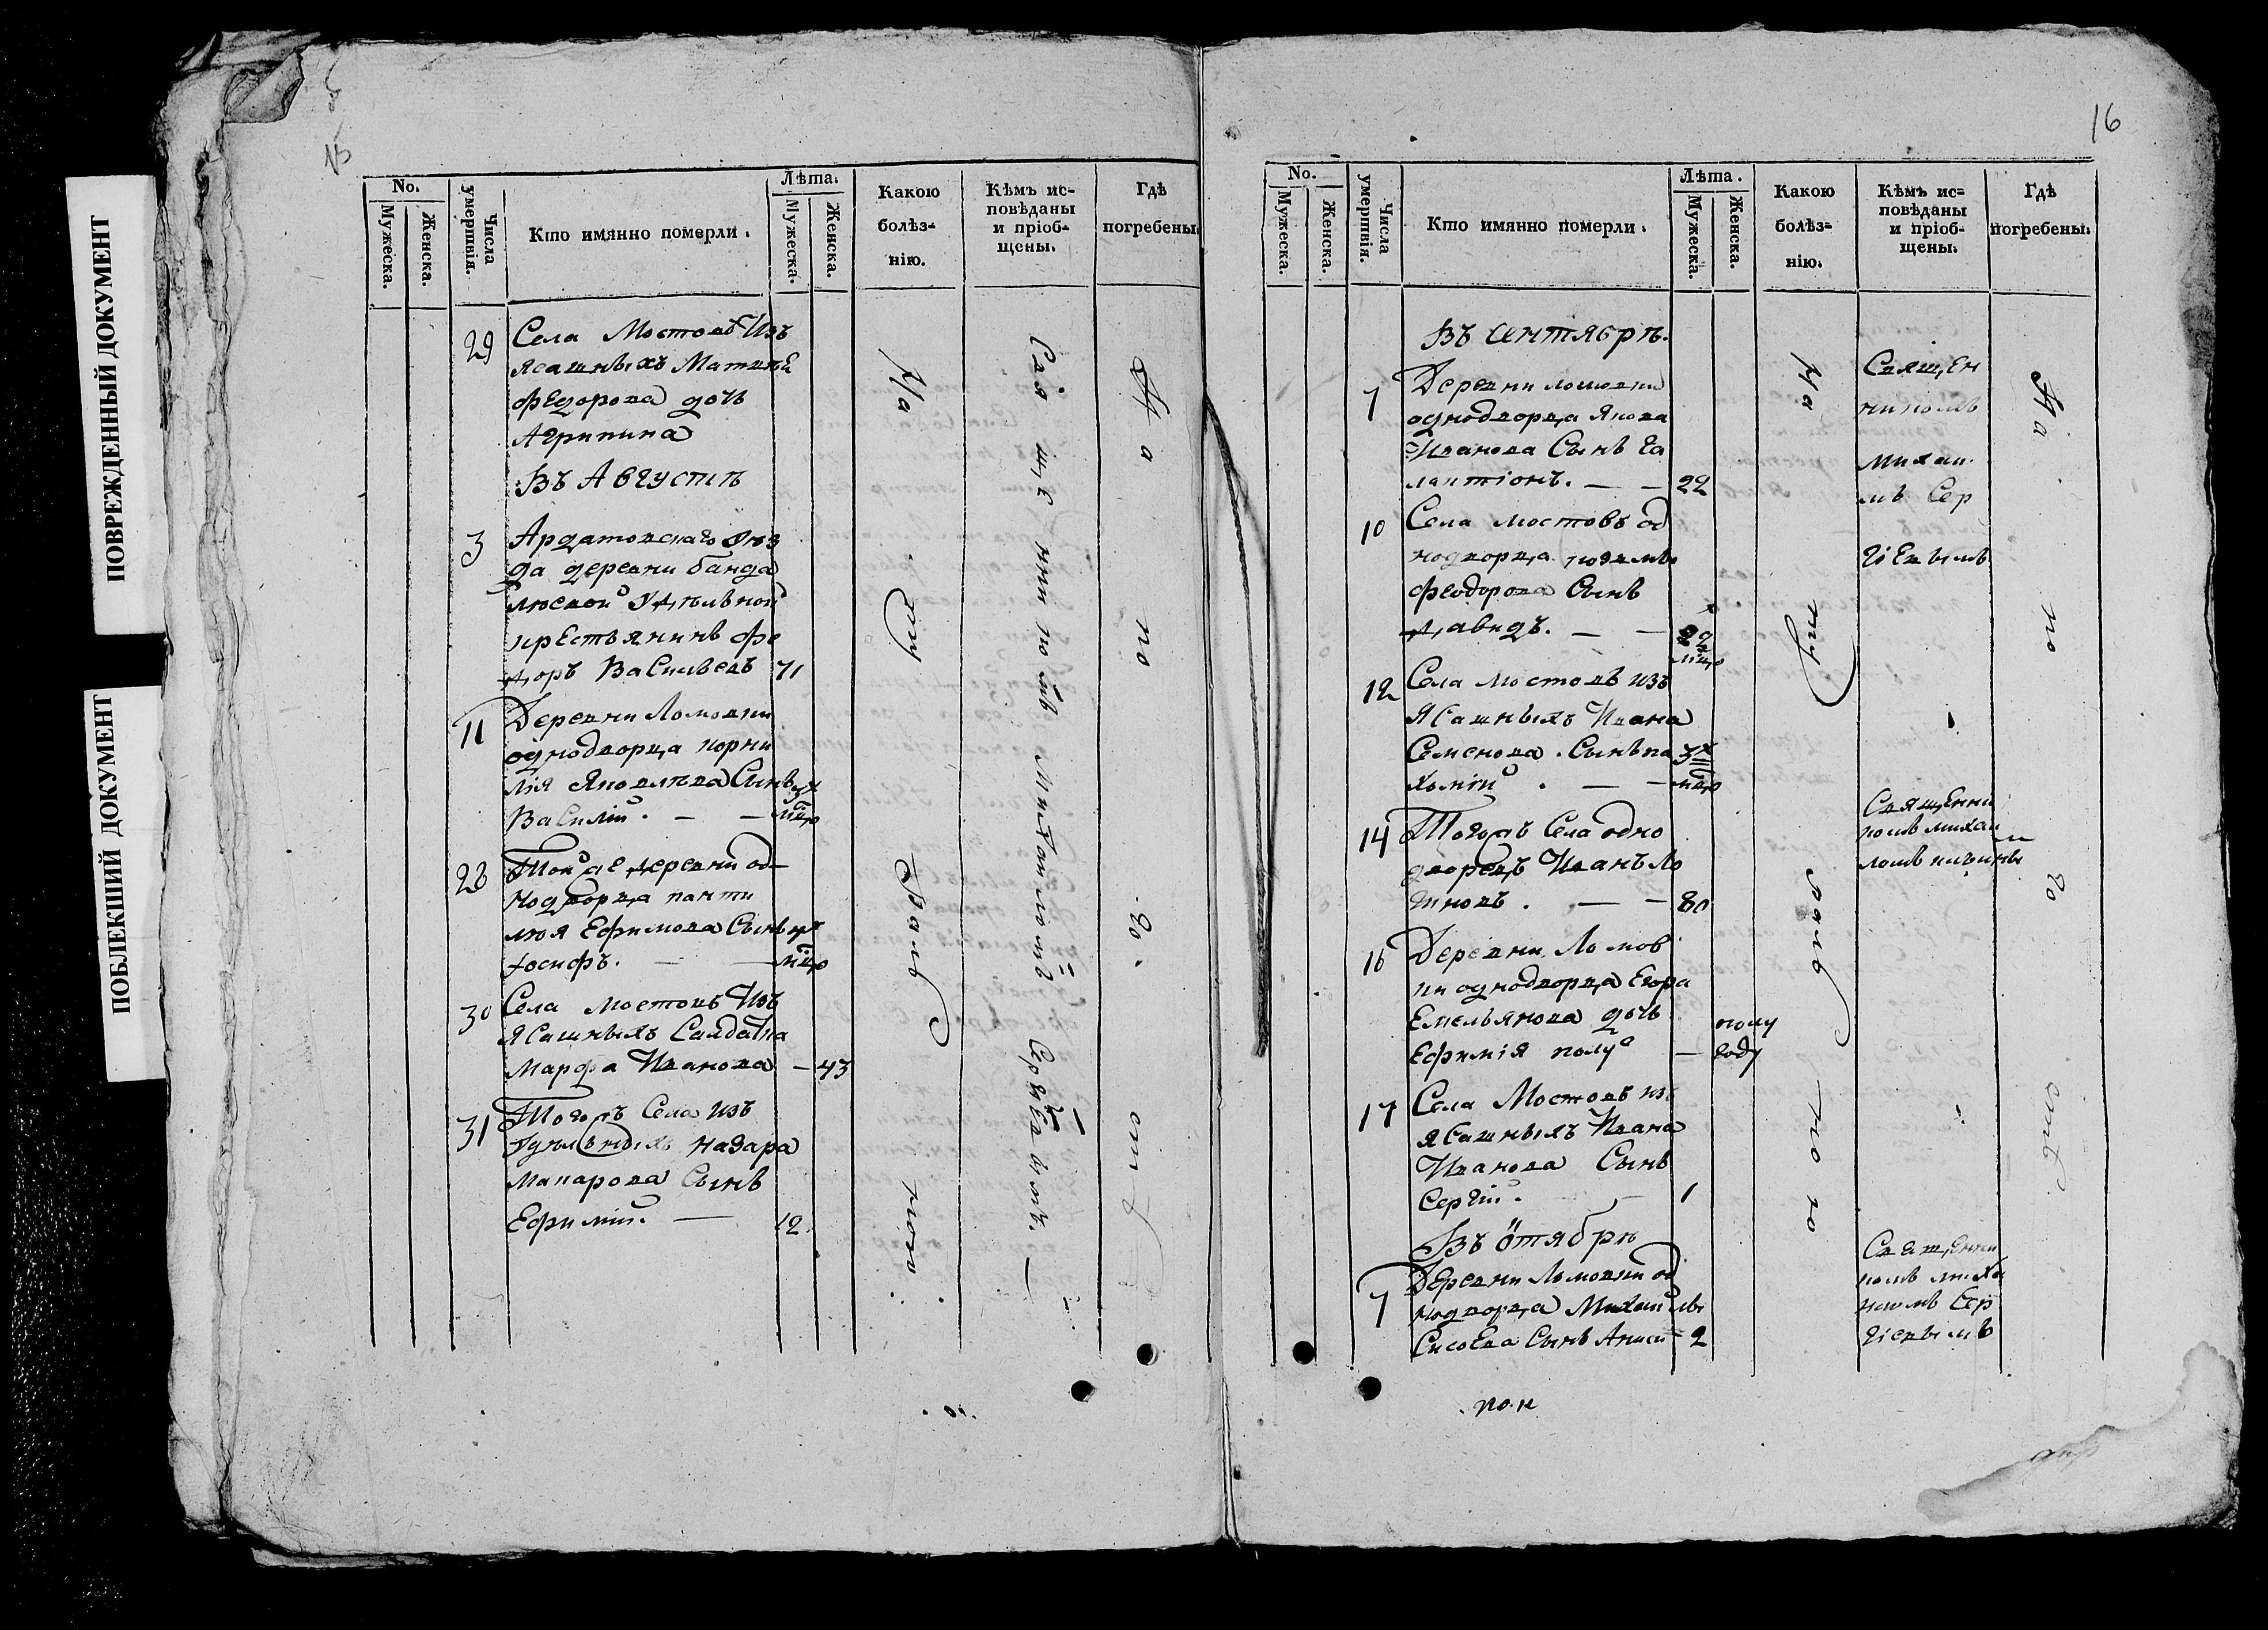 ПОВРЕЖДЕННЫЙ ДОКУМЕНТ
ПОБЛЕКШИЙ ДОКУМЕНТ
15
No.
Мужеска.
Женска.
Числа умертвія.
Кто имянно померли.
Лѣта.
Мужеска.
Женска.
Какою
болѣз-
нію.
Кѣмъ ис-
повѣданы
и пріоб-
щены.
Гдѣ
погребены
29 Села Мостовъ Изъ
Ясашныхъ Матвѣя
Федорова дочь
Агрипина
Въ Августѣ
3 Ардатовскаго уѣз
да деревни
удѣльной
крестьянинъ Фе
доръ Васильевъ 71
11 Деревни Ломовки
однодворца Корни
лія Яковлева Сынъ
Василій. — —
23 Тойже деревни од-
нодворца Панти
лея Ефимова Сынъ
Іосифъ. — —
30 Села Мостовъ Изъ
Ясашныхъ Салдатка
Марфа Иванова — 43
31 Тогожъ Села изъ
удѣльныхъ Назара
Макарова Сынъ
Ефимій. — 12.
Натуральною.
Священникомъ Михаиломъ Сергіевымъ. —
На погостѣ
16
No.
Мужеска.
Женска.
Числа умертвія.
Кто имянно померли.
Лѣта.
Мужеска.
Женска.
Какою
болѣз=
нію.
Кѣмъ ис=
повѣданы
и пріоб-
щены.
Гдѣ
погребены.
Въ Сентябрѣ.
7 Деревни Ломовки
однодворца Якова
Иванова Сынъ Га
лактіонъ. — — 22
10 Села Мостовъ од
нодворца Козьмы
Феодорова Сынъ
Давидъ. — —
12 Села Мостовъ изъ
Ясашныхъ Ивана
Семенова Сынъ Па
хомій. — —
14 Тогожъ Села одно
дворецъ Иванъ Ло
гиновъ. — — 80
16 Деревни Ломов
ки однодворца Егора
Емельянова дочь
Ефимія полу — полу
году
17 Села Мостовъ изъ
ясашныхъ Ивана
Иванова Сынъ
Сергій. — 1
Въ Октябрѣ
7 Деревни Ломовки од
нодворца Михайлы
Сисоева Сынъ Аники= 2
Натуральною
Священ
никомъ
Михаи
мъ Сер
гіевымъ
Священни
комъ Михаи
ломъ
Священни
комъ Миха
иломъ Сер
гіевымъ
На погостѣ